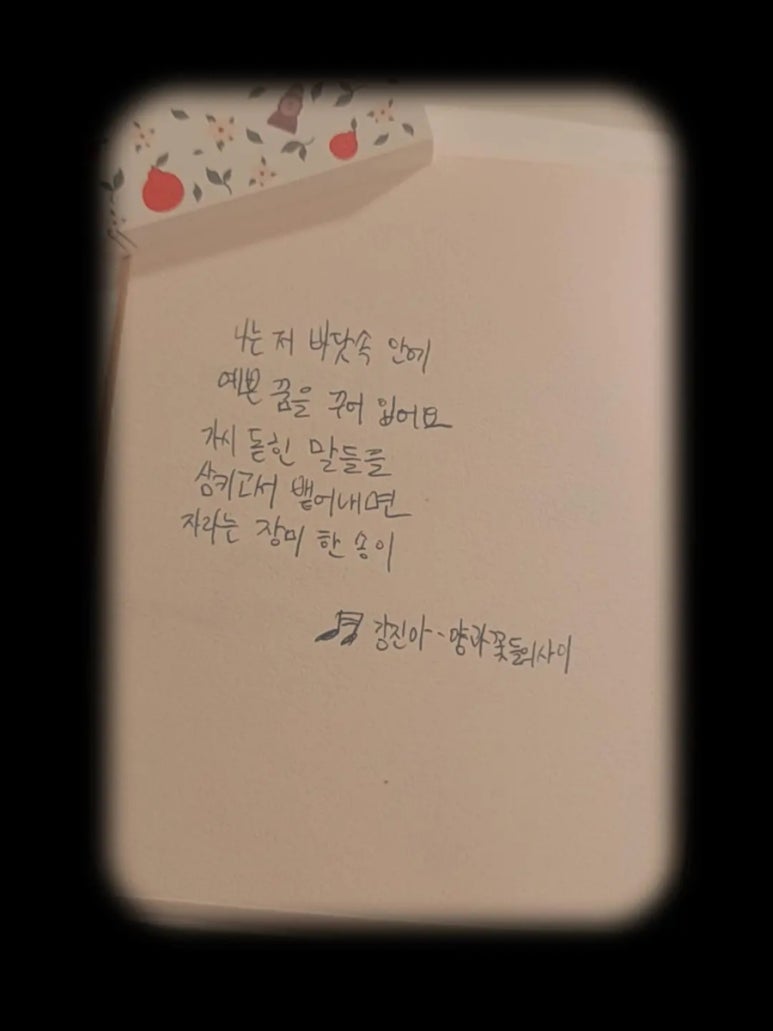 나는 저 바닷속 안에
예쁜 꿈을 꾸어 입어요
가시 돋힌 말들을
삼키고서 뱉어내면
자라는 장미 한 송이
강진아 - 양과 꽃들의 사이